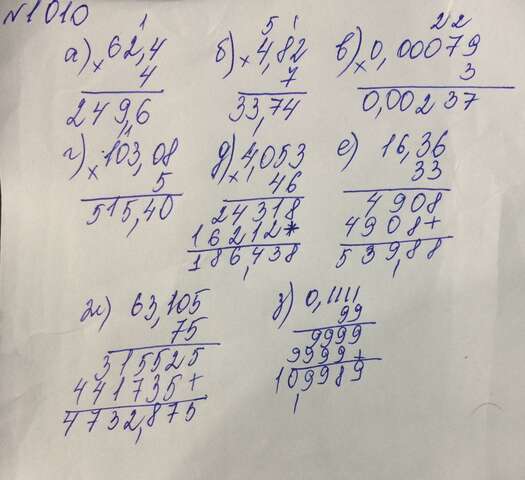 №1010
1
5 1
2 2
а) × 62,4
б) × 4,82
в) × 0,00079
4
7
3
249,6
33,74
0,00237
г) × 103,08
д) × 4,053
е) 16,36
5
46
33
515,40
24318
4908
16212*
4908+
186,438
539,88
ж) 63,105
з) 0,1111
75
99
315525
9999
441735+
9999+
4732,875
10,9989